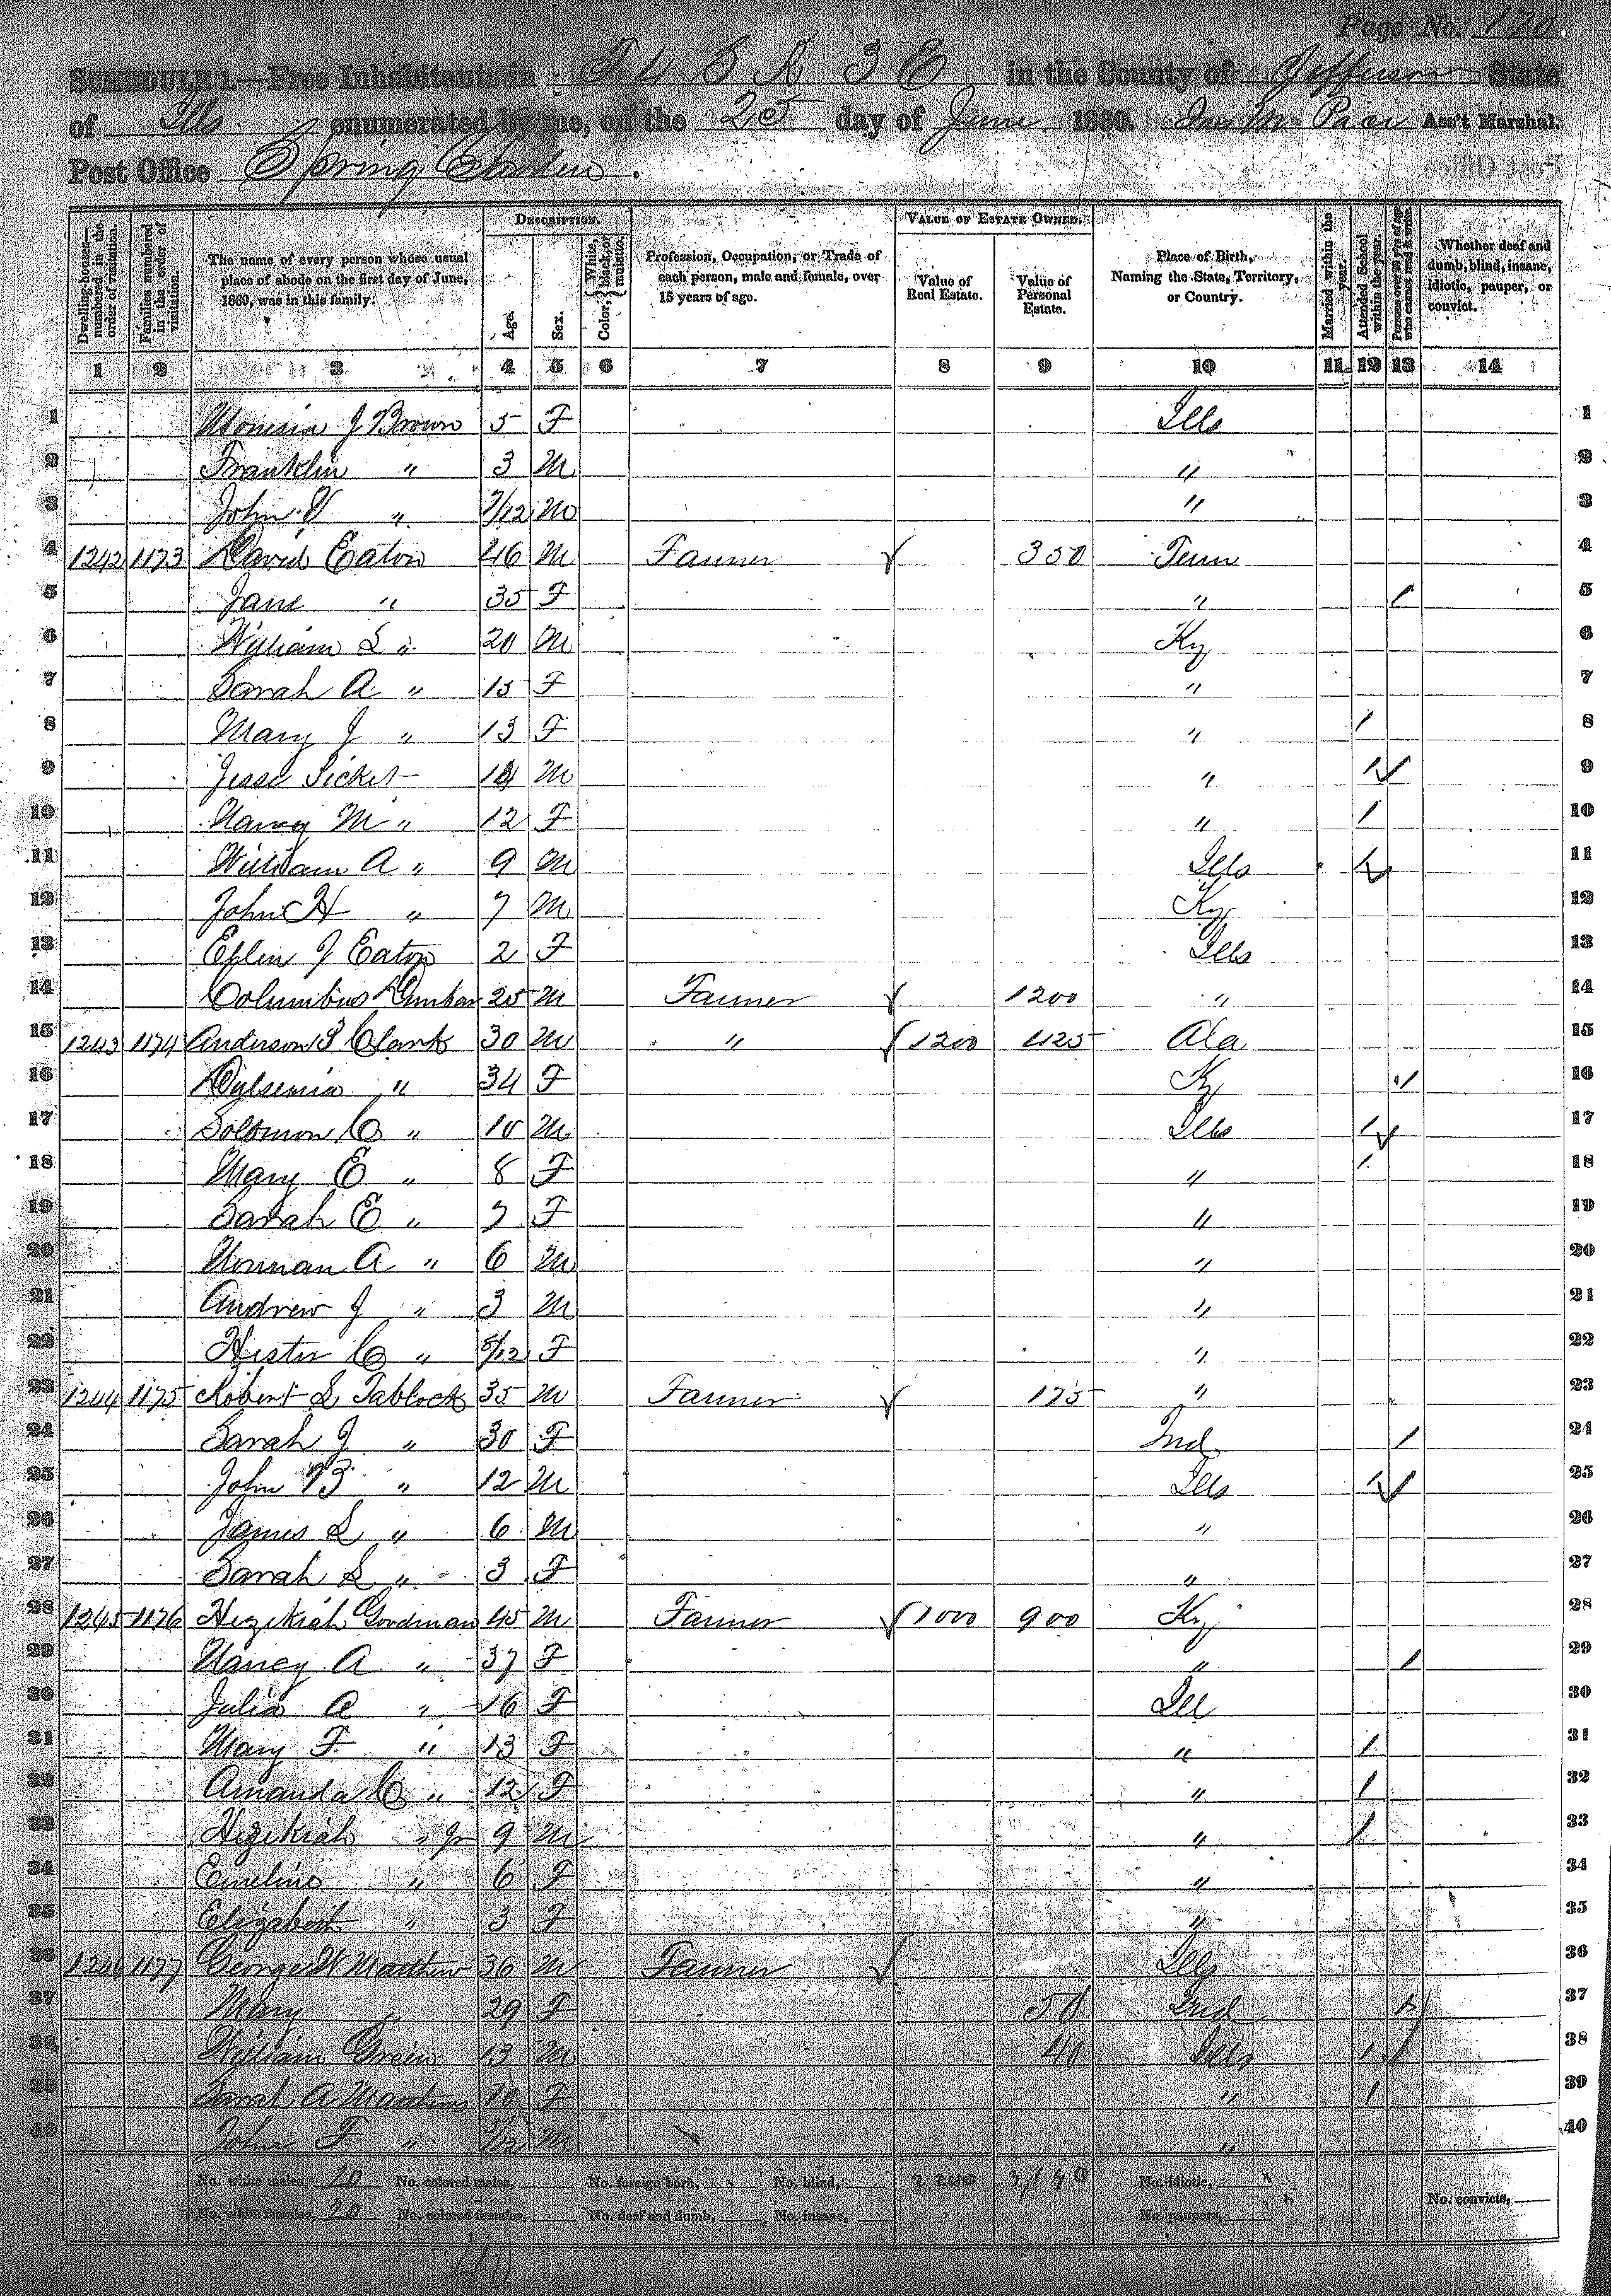 Page No. 170.
SCHEDULE 1.—Free Inhabitants in T 4 S R 3 E in the County of Jefferson State
of Ills. enumerated by me, on the 25 day of June 1860. Ass't Marshal.
Post Office Spring Garden.
Dwelling-houses—numbered in the order of visitation.
Families numbered in the order of visitation.
The name of every person whose usual place of abode on the first day of June, 1860, was in this family.
DESCRIPTION.
Age.
Sex.
Color, { White, black, or mulatto.
Profession, Occupation, or Trade of each person, male and female, over 15 years of age.
VALUE OF ESTATE OWNED.
Value of Real Estate.
Value of Personal Estate.
Place of Birth, Naming the State, Territory, or Country.
Married within the year.
Attended School within the year.
Persons over 20 y'rs of age who cannot read & write.
Whether deaf and dumb, blind, insane, idiotic, pauper, or convict.
1 2 3 4 5 6 7 8 9 10 11 12 13 14
1 J Brown 5 F Ills 1
2 Franklin " 3 M " 2
3 John V " 7/12 M " 3
4 1242 1173 David Eaton 46 M Farmer 350 Tenn 4
5 Jane " 35 F " / 5
6 William L " 20 M Ky 6
7 Sarah A " 15 F " 7
8 Mary J " 13 F " / 8
9 Jesse 14 M " / 9
10 Nancy M " 12 F " / 10
11 William A " 9 M Ills / 11
12 John H " 7 M Ky 12
13 J Eaton 2 F Ills 13
14 Columbus 25 M Farmer 1200 " 14
15 1243 1174 Anderson Clark 30 M " 1200 425 Ala 15
16 " 34 F Ky / 16
17 Solomon C " 10 M Ills / 17
18 Mary E " 8 F " / 18
19 Sarah E " 7 F " 19
20 Norman A " 6 M " 20
21 Andrew J " 3 M " 21
22 Hester C " 5/12 F " 22
23 1244 1175 Robert S Tablock 35 M Farmer 175 " 23
24 Sarah J " 30 F Ind / 24
25 John B " 12 M Ills / 25
26 James S " 6 M " 26
27 Sarah S " 3 F " 27
28 1245 1176 Hezekiah Goodman 45 M Farmer 1000 900 Ky 28
29 Nancy A " 37 F " / 29
30 Julia A " 16 F Ill 30
31 Mary F " 13 F " / 31
32 Amanda C " 12 F " / 32
33 Hezikiah " Jr 9 M " / 33
34 Emeline " 6 F " 34
35 Elizabeth " 3 F " 35
36 1246 1177 George W Matthew 36 M Farmer Ills 36
37 Mary " 29 F 50 Ind / 37
38 William Green 13 M 40 Ills / 38
39 Sarah A 10 F " / 39
40 John F " 3/12 M " 40
No. white males, 20 No. colored males, No. foreign born, No. blind, 2200 3,140 No. idiotic,
No. white females, 20 No. colored females, No. deaf and dumb, No. insane, No. paupers, No. convicts,
40